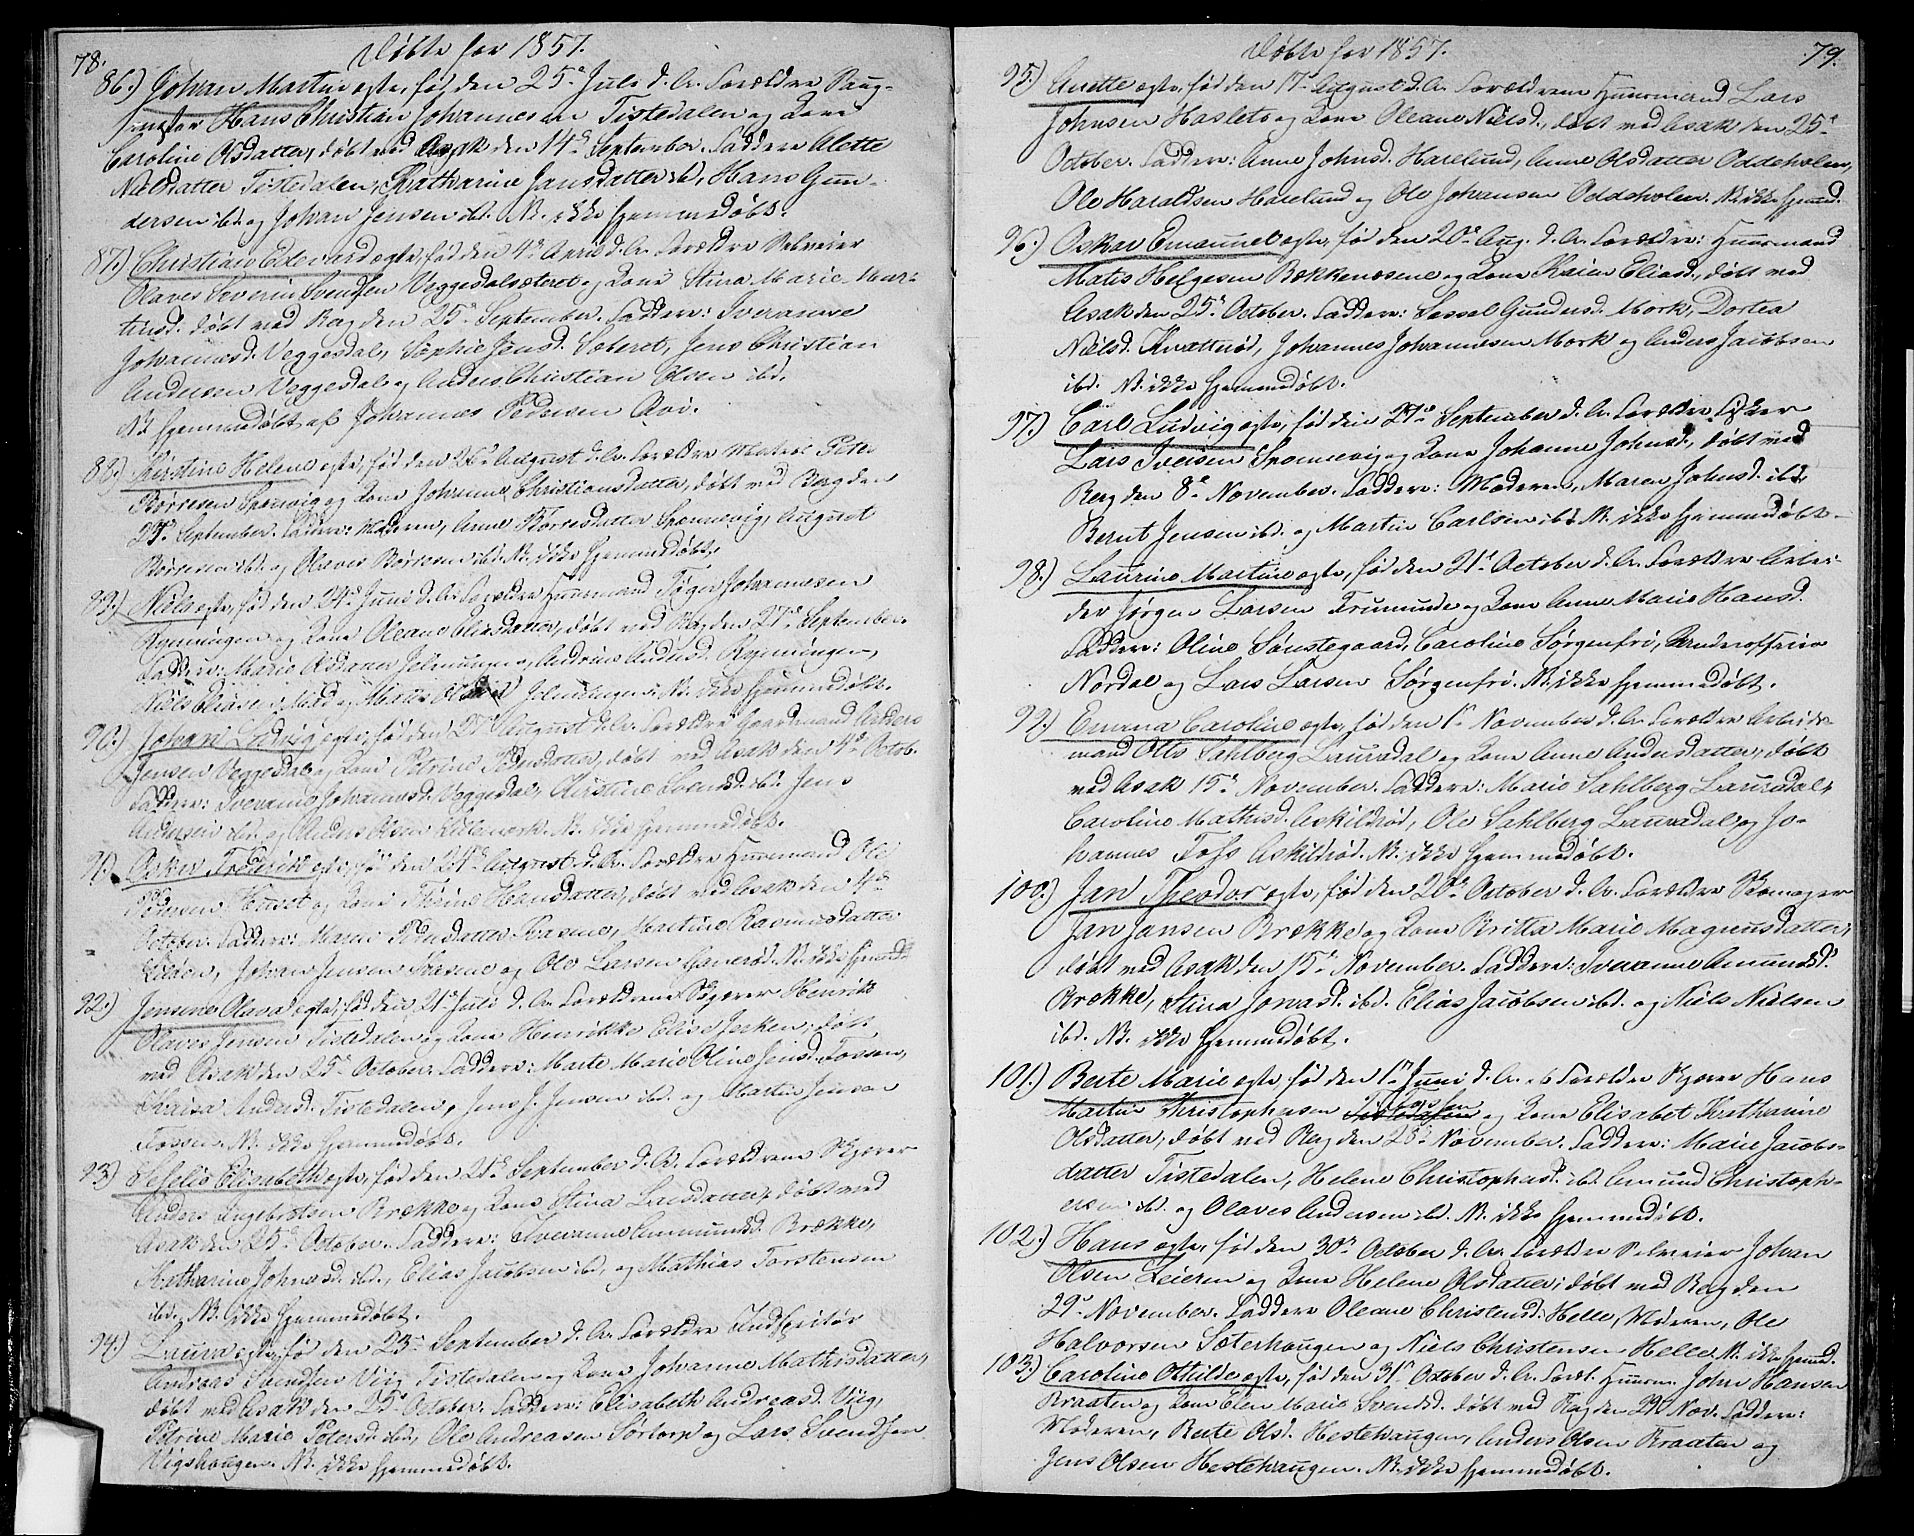 78.
Døbte for 1857.
86.) Johan Martin ægte, fød den 25de Juli d. A. Forældre Saug-
mester Hans Christian Johannesen Tistedalen og Kone
Caroline Olsdatter, døbt ved Asak den 14de September. Faddere Alette
Nielsdatter Tistedalen, Katharine Jansdatter ibd, Hans Gun-
dersen ibd. og Johan Jensen ibd. NB. ikke hjemmedøbt.
87.) Christian Edevard ægte, fød den 4de April d. A. Forældre Selveier
Olaves Severin Svendsen Veggedalsæteret og Kone Stina Marie Mar-
tinsd. døbt ved Berg den 25de September. Faddere: Iveranne
Johannesd. Veggesdal, Sophie Jensd. Sæteret, Jens Christian
Andersen Veggesdal og Anders Christian Olsen ibd.
NB hjemmedøbt af Johannes Pedersen
88.) Kirstine Helene ægte, fød den 26de August d. A. Forældre Matros Peter
Børresen Sponvig og Kone Johanne Christiansdatter, døbt ved Berg den
September. Faddere: Moderen, Anne Børresdatter Sponnevig, August
Børresen ibd. og Olaves Børresen ibd. NB. ikke hjemmedøbt.
89.) Niels ægte, fød den 24de Juni d. A. Forældre Huusmand Tøger Johannesen
og Kone Oleane Eliasdatter, døbt ved Berg den 27de September.
Faddere: Marie og Andrine Andersd.
Niels Eliasen NB. ikke hjemmedøbt.
90.) Johan Ludvig ægte, fød den August d. A. Forældre Gaardmand Anders
Jensen Veggesdal og Kone Petrine Pedersdatter, døbt ved Asak den 4de Octob.
Faddere: Iveranne Johannesd. Veggesdal, Kirstine Svendsd. ibd. Jens
Andersen ibd. og Anders Olsen NB. ikke hjemmedøbt.
91.) Oskar Frederik ægte, fød den 24de August d. A. Forældre Huusmand Ole
Pedersen og Kone Hansdatter, døbt ved Asak den 4de
October. Faddere: Maren Martine Rasmusdatter
Johan Jensen og Ole Larsen NB. ikke hjemmd
92.) Jensine Olava ægte, fød den 21de Juli d. A. Forældrene Skjærer Henrik
Olaves Jensen Tistedalen og Kone Henrikke Elise døbt
ved Asak den 25de October. Faddere: Marte Marie Oline Jensd. Fossen,
Kaisa Andersd. Tistedalen, Jens J. Jensen ibd. og Martin Jensen
Fossen. NB. ikke hjemmedøbt.
93.) Sefelie Elisabeth ægte, fød den 21de September d. A. Forældrene Skjærer
Anders Ingebretsen Brække og Kone Stina Larsdatter, døbt ved
Asak den 25de October. Faddere: Iveranne Ammundsd. Brække,
Katharine Johnasd. ibd, Elias Jacobsen ibd, og Mathias Torstensen
ibd. NB. ikke hjemmedøbt.
94.) Laura ægte, fød den 23de September d. A. Forældre Indspektør
Andreas Svendsen Viig Tistedalen og Kone Johanne Mathisdatter,
døbt ved Asak den 25de October. Faddere: Elisabeth Andreasd. Viig,
Petrine Marie Petersd. ibd, Ole Andreasen Sørtorp og Lars Svendsen
Vigshougen. NB. ikke hjemmedøbt.
79.
Døbte for 1857.
95.) Anette ægte, fød den 17de August d. A. Forældrene Huusmand Lars
Johnsen Haslets og Kone Oleane Nielsd., døbt ved Asak den 25de
October. Faddere: Anne Johnsd. Harelund, Anne Olsdatter Oddeholen,
Ole Haraldsen Harelund og Ole Johansen Oddeholen. NB. ikke hjemmd.
96.) Oskar Emanuel ægte, fød den 20de Aug. d. A. Forældre: Huusmand
Matis Helgesen Bækkenæsene og Kone Karen Eliasd., døbt ved
Asak den 25de October. Faddere: Sassel Gundersd. Mork, Dortea
Nielsd. Knatterød, Johannes Johannesen Mork og Anders Jacobsen
ibd. NB. ikke hjemmedøbt.
97.) Carl Ludvig ægte, fød den 27de September d. A. Forældre Fisker
Lars Iversen Sponnevig og Kone Johanne Johnsd., døbt ved
Berg den 8de November. Faddere: Moderen, Maren Johnsd. ibd,
Bernt Jensen ibd. og Martin Carlsen ibd. NB. ikke hjemmedøbt.
98.) Laurine Martine ægte, fød den 21de October d. A. Forældre Arbei-
der Jørgen Larsen og Kone Anne Marie Hansd.
Faddere: Oline Tønstegaard, Caroline Sørgenfri,
Nordal og Lars Larsen Sørgenfri. NB. ikke hjemmedøbt.
99.) Emma Caroline ægte, fød den 1ste November d. A. Forældre Arbeids-
mand Otto Sahlberg Laursdal og Kone Anne Andersdatter, døbt
ved Asak 15de November. Faddere: Marie Sahlberg Laursdal,
Caroline Mathisd. Askildrød, Ole Sahlberg Laursdal, og Jo-
hannes Foss Askildrød. NB. ikke hjemmedøbt.
100.) Jan Theodor ægte, fød den 20de October d. A. Forældre Skomager
Jan Jansen Brække og Kone Britta Marie Magnusdatter,
døbt ved Asak den 15de November. Faddere: Iveranne Amundsd.
Brække, Stina Jonasd. ibd. Elias Jacobsen ibd. og Niels Nielsen
ibd. NB. ikke hjemmedøbt.
101.) Berte Marie ægte, fød den 1ste Juni d. A. Forældre Skjærer Hans
Martin Christophersen Fossen og Kone Elisabet Katharine
Olsdatter, døbt ved Berg den November. Faddere: Marie Jacobs-
datter Tistedalen, Helene Christophersd. ibd. Amund Christoph-
ersen ibd. og Olaves Andersen ibd. NB. ikke hjemmedøbt.
102.) Hans ægte, fød den 30de October d. A. Forældre Selveier Johan
Olsen Leieren og Kone Helene Olsdatter, døbt ved Berg den
29de November. Faddere Oleane Christensd. Helle, Moderen, Ole
Halvorsen Sæterhaugen og Niels Christensen Helle NB. ikke hjemmd.
103.) Caroline Othilde ægte, fød den 31te October d. A. Foræl. Huusm. John Hansen
Braaten og Kone Elen Marie Svendsd. døbt ved Berg den 29 Nov. Faddere:
Moderen, Berte Olsd. Hestehaugen, Anders Olsen Braaten og
Jens Olsen Hestehaugen. NB. ikke hjemmedøbt.